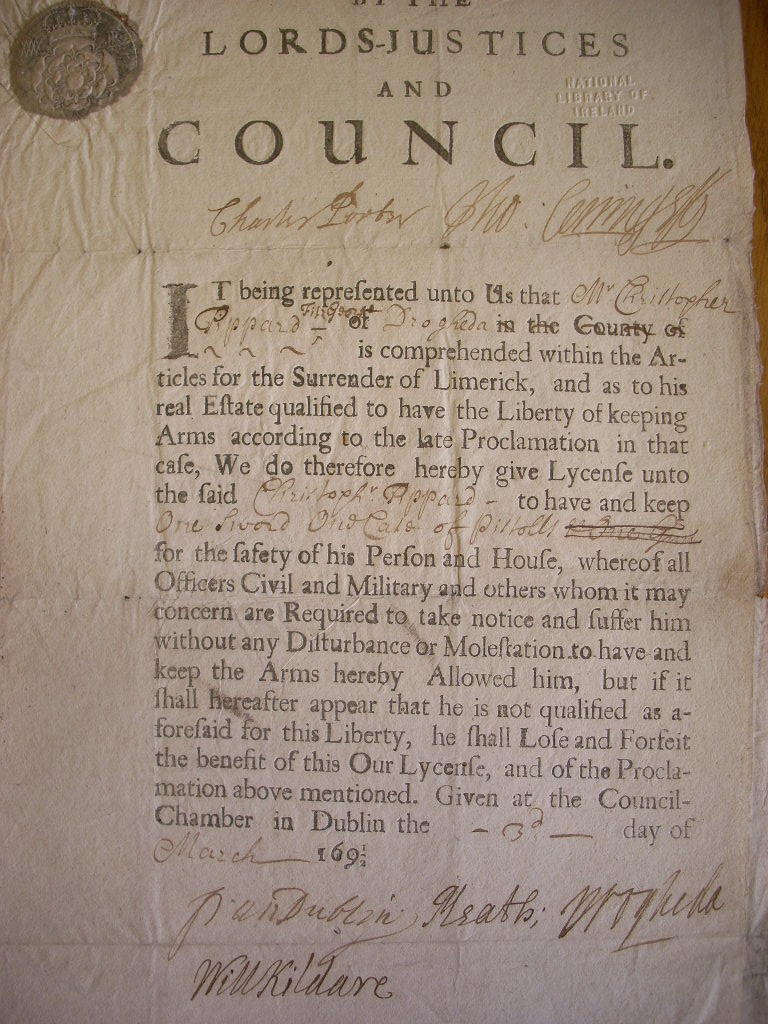 BY THE
LORDS-JUSTICES
AND
COUNCIL.
NATIONAL
LIBRARY OF
IRELAND
Charles Porter Tho: Coningsby
IT being repreſented unto Us that Mr Christopher
Peppard FitzGeorge of Drogheda in the County of
is comprehended within the Ar-
ticles for the Surrender of Limerick, and as to his
real Eſtate qualified to have the Liberty of keeping
Arms according to the late Proclamation in that
caſe, We do therefore hereby give Lycenſe unto
the ſaid Christophr. Peppard - to have and keep
One Sword One Case of pistolls
for the ſafety of his Perſon and Houſe, whereof all
Officers Civil and Military and others whom it may
concern are Required to take notice and ſuffer him
without any Diſturbance or Moleſtation to have and
keep the Arms hereby Allowed him, but if it
ſhall hereafter appear that he is not qualified as a-
foreſaid for this Liberty, he ſhall Loſe and Forfeit
the benefit of this Our Lycenſe, and of the Procla-
mation above mentioned. Given at the Council-
Chamber in Dublin the - 3d — day of
March 169½
Fran Dublin Meath; Drogheda
Will Kildare